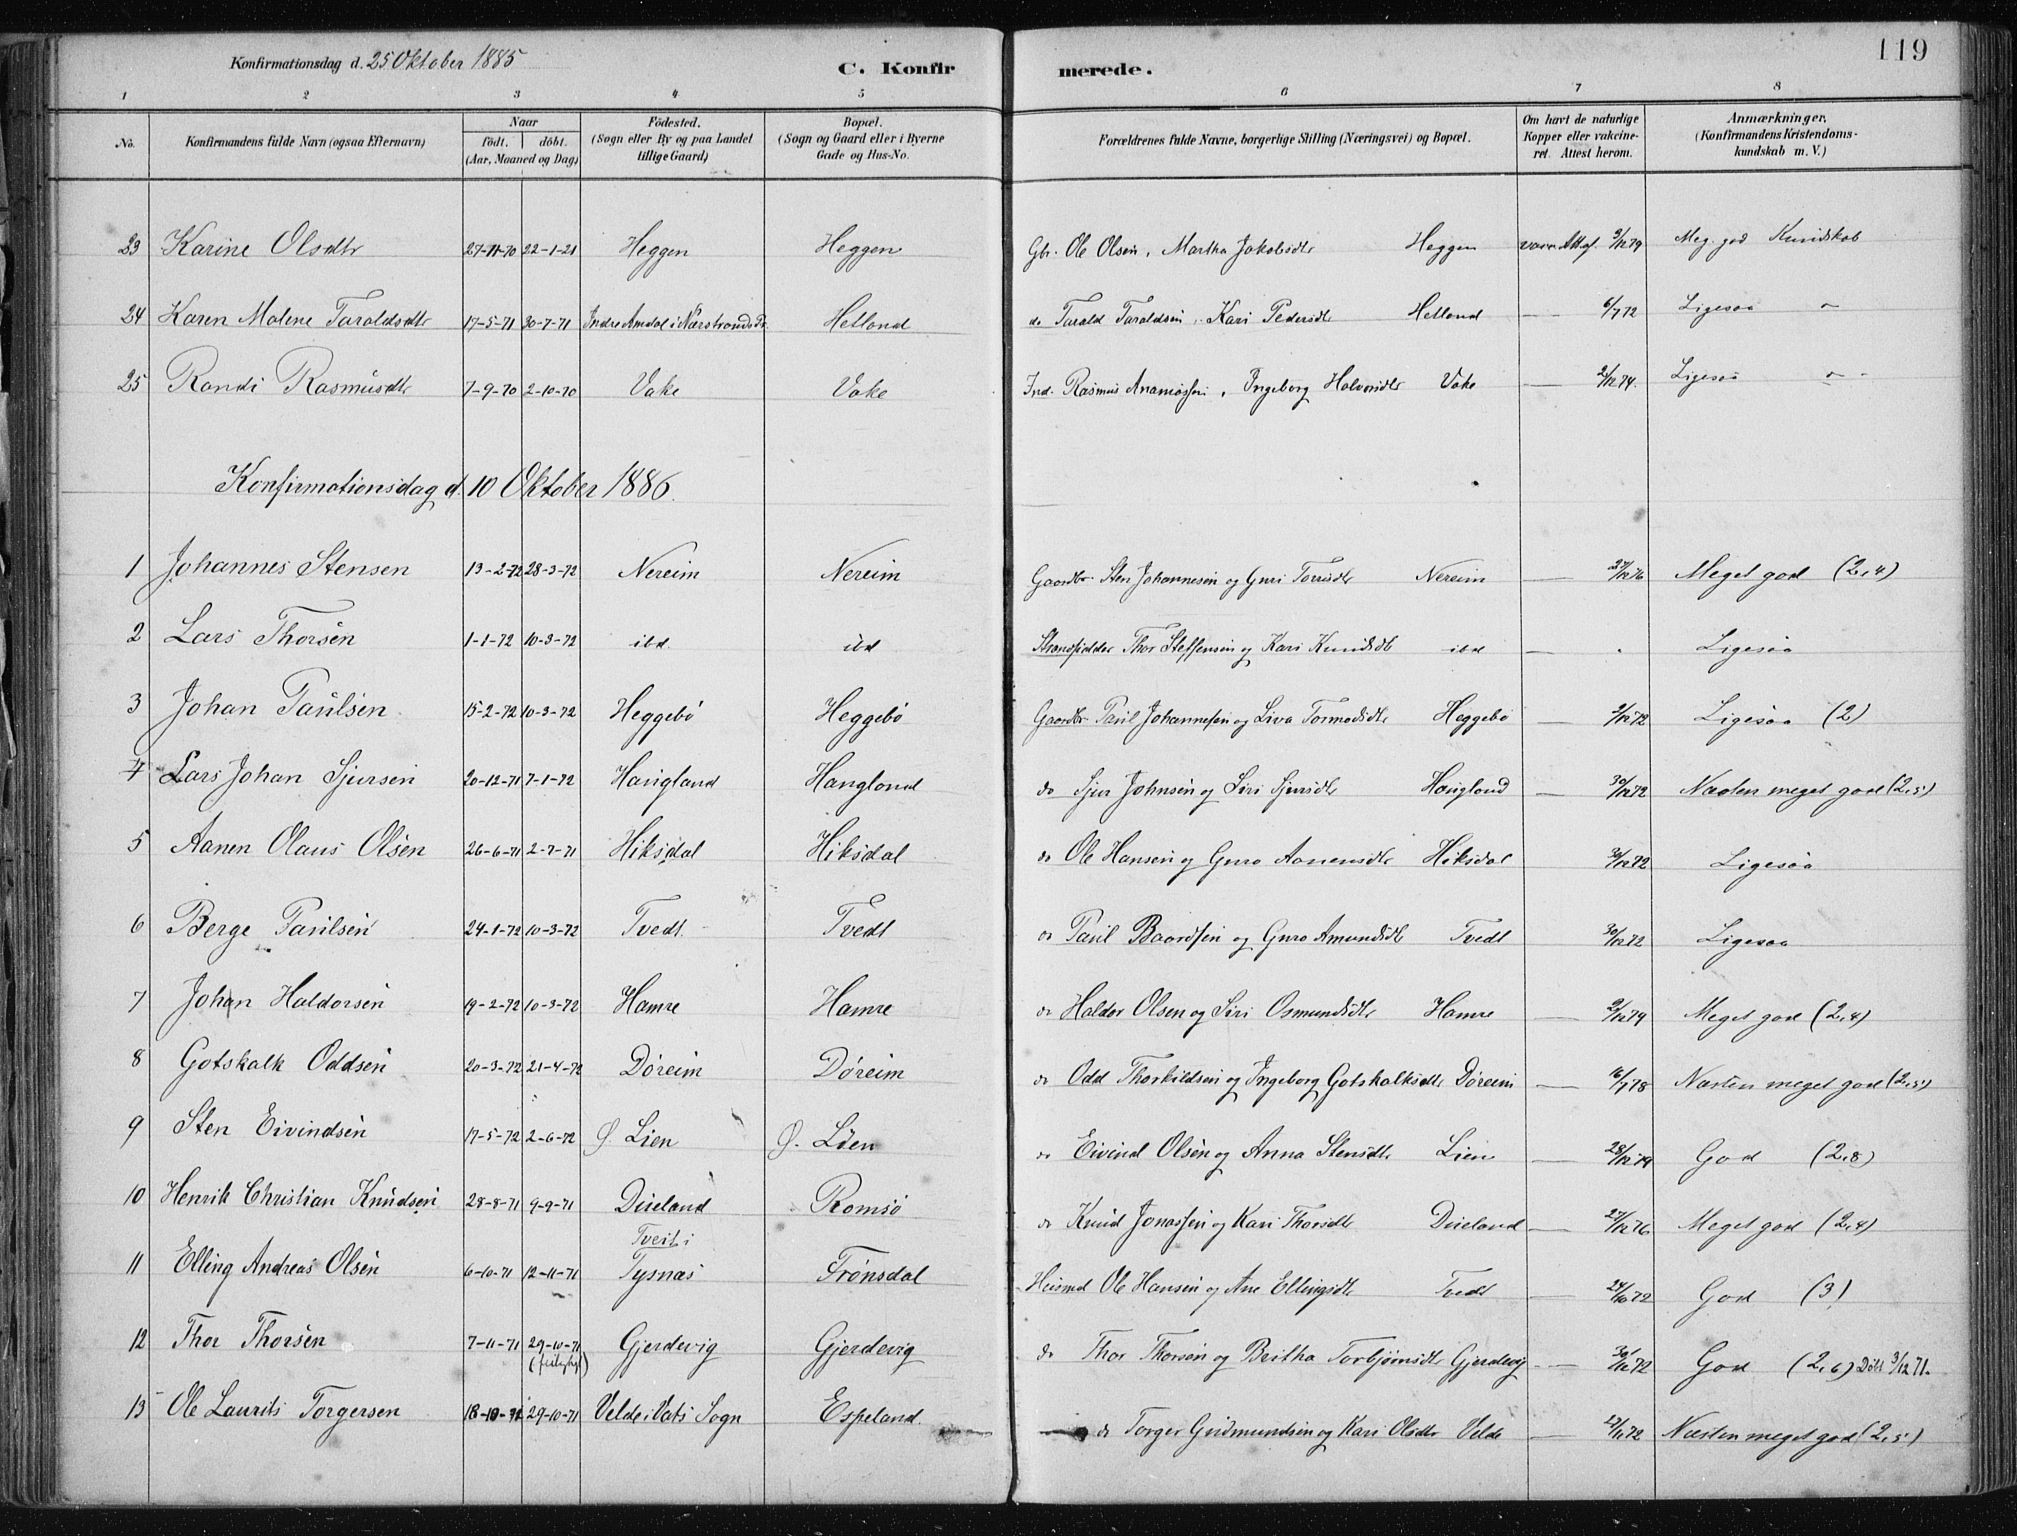 Konfirmationsdag d. 25 Oktober 1885
C. Konfirmerede.
119
1 2 3 4 5 6 7 8
No. Konfirmandens fulde Navn (ogsaa Efternavn) Naar födt. döbt. (Aar, Maaned og Dag) Födested. (Sogn eller By og paa Landet tillige Gaard) Bopæl. (Sogn og Gaard eller i Byerne Gade og Hus-No. Forældrenes fulde Navne, borgerlige Stilling (Næringsvei) og Bopæl. Om havt de naturlige Kopper eller vakcineret. Attest herom. Anmærkninger. (Konfirmandens Kristendomskundskab m. V.)
23 Karine Olsdtr 27-11-70 22-1-21 Heggen Heggen Gbr. Ole Olsen, Martha Jakobsdtr Heggen 9/12 79 Meg. god Kundskab
24 Karen Malene Taraldsdtr 17-5-71 30-7-71 Indre Amdal i Nærstrands Hetland do Tarald Taraldsen, Kari Pedersdtr Hetland — 6/7 72 Ligesaa ~
25 Randi Rasmusdtr 7-9-70 2-10-70 Vake Vake Ind. Rasmus, Ingeborg Halvorsdtr Vake — 2/12 74. Ligesaa ~
Konfirmationsdag d. 10 Oktober 1886.
1 Johannes Stensen 13-2-72 28-3-72 Nereim Nereim Gaardbr Sten Johannesen og Guri Nereim — 27/12 76 Meget god (2,4)
2 Lars Thorsen 1-1-72 10-3-72 ibd ibd Strandsidder Thor Steffensen og Kari Knudsdtr ibd — Ligesaa
3 Johan Paulsen 15-2-72 10-3-72 Heggebö Heggebö Gaardbr Paul Johannesen og Liva Tormodsdtr Heggebö — 2/12 72 Ligesaa (2)
4 Lars Johan Sjursen 20-12-71 7-1-72 Haugland Haugland do Sjur Johnsen og Siri Sjursdtr Haugland — 30/12 72 Næsten meget god (2,5)
5 Aanen Olaus Olsen 26-6-71 2-7-71 Hiksdal Hiksdal do Ole Hansen og Guro Aanensdtr Hiksdal 30/12 72 Ligesaa
6 Berge Paulsen 24-1-72 10-3-72 Tvedt Tvedt do Paul Baardsen og Guro Amundsdtr Tvedt 30/12 72 Ligesaa
7 Johan Haldorsen 19-2-72 10-3-72 Hamre Hamre do Haldor Olsen og Siri Osmundsdtr Hamre — 2/12 79 Meget god (2,4)
8 Gotskalk Oddsen 20-3-72 21-4-72 Döreim Döreim do Odd Thorkildsen og Ingeborg Gotskalksdtr Döreim — 16/7 78 Næsten meget god (2,5)
9 Sten Eivindsen 17-5-72 2-6-72 Ø. Lien Ø. Lien do Eivind Olsen og Anna Stensdtr Lien — 28/12 79 God (2,8)
10 Henrik Christian Knudsen 28-8-71 9-9-71 Dueland Romsö do Knud Jonassen og Kari Thorsdtr Dueland — 27/12 76 Meget god (2,4)
11 Elling Andreas Olsen 6-10-71 12-11-71 Tveit i Tysnæs Frönsdal Husmd Ole Hansen og Ane Ellingsdtr Tvedt — 24/10 72 God (3)
12 Thor Thorsen 7-11-71 29-10-71 Gjerdevig Gjerdevig do Thor Thorsen og Britha Torbjörnsdtr Gjerdevig — 30/12 72 God (2,6) Döbt 3/12 71.
13 Ole Laurits Torgersen 18-10-71 29-10-71 Velde i Vats Sogn Espeland do Torger Gudmundsen og Kari Olsdtr Velde — 72 Næsten meget god (2,5)